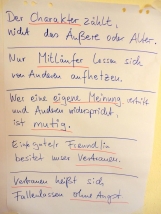 Der Charakter zählt,
nicht das Äußere oder Alter.
Nur Mitläufer lassen sich
von Anderen aufhetzen.
Wer eine eigene Meinung vertritt
und Anderen widerspricht,
ist mutig.
Ein/e gute/r Freund/in
besitzt unser Vertrauen.
Vertrauen heißt sich
Fallenlassen ohne Angst.